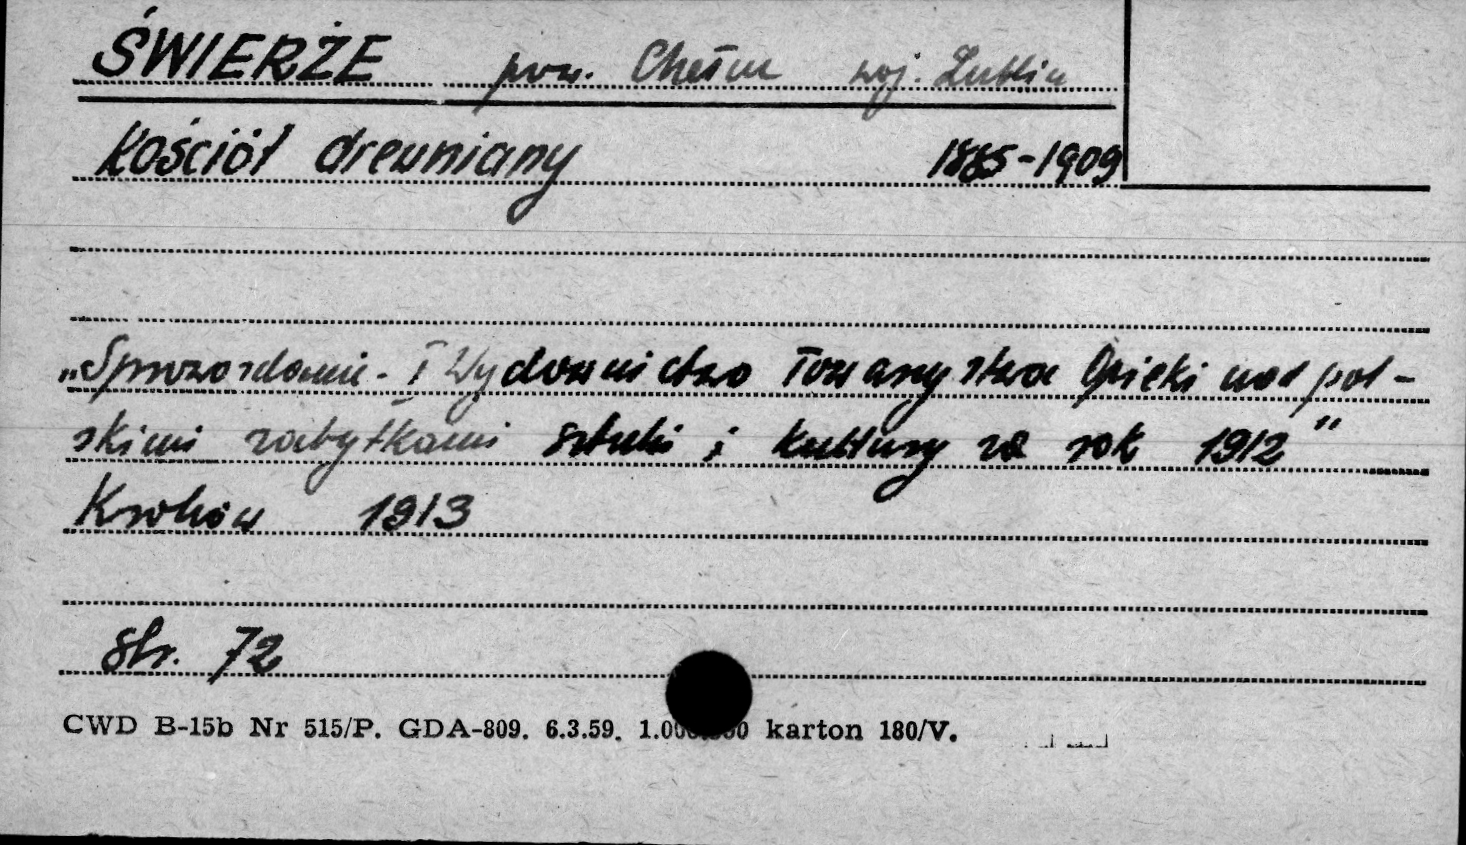 ŚWIERŻE pow. Chełm woj. Lublin
Kościół drewniany 1885-1909
„Sprawozdanie. I Wydawnictwo Towarzystwa Opieki nad pol-
skimi zabytkami sztuki i kultury za rok 1912"
Kraków 1913
Str. 72
CWD B-15b Nr 515/P. GDA-809. 6.3.59. karton 180/V.